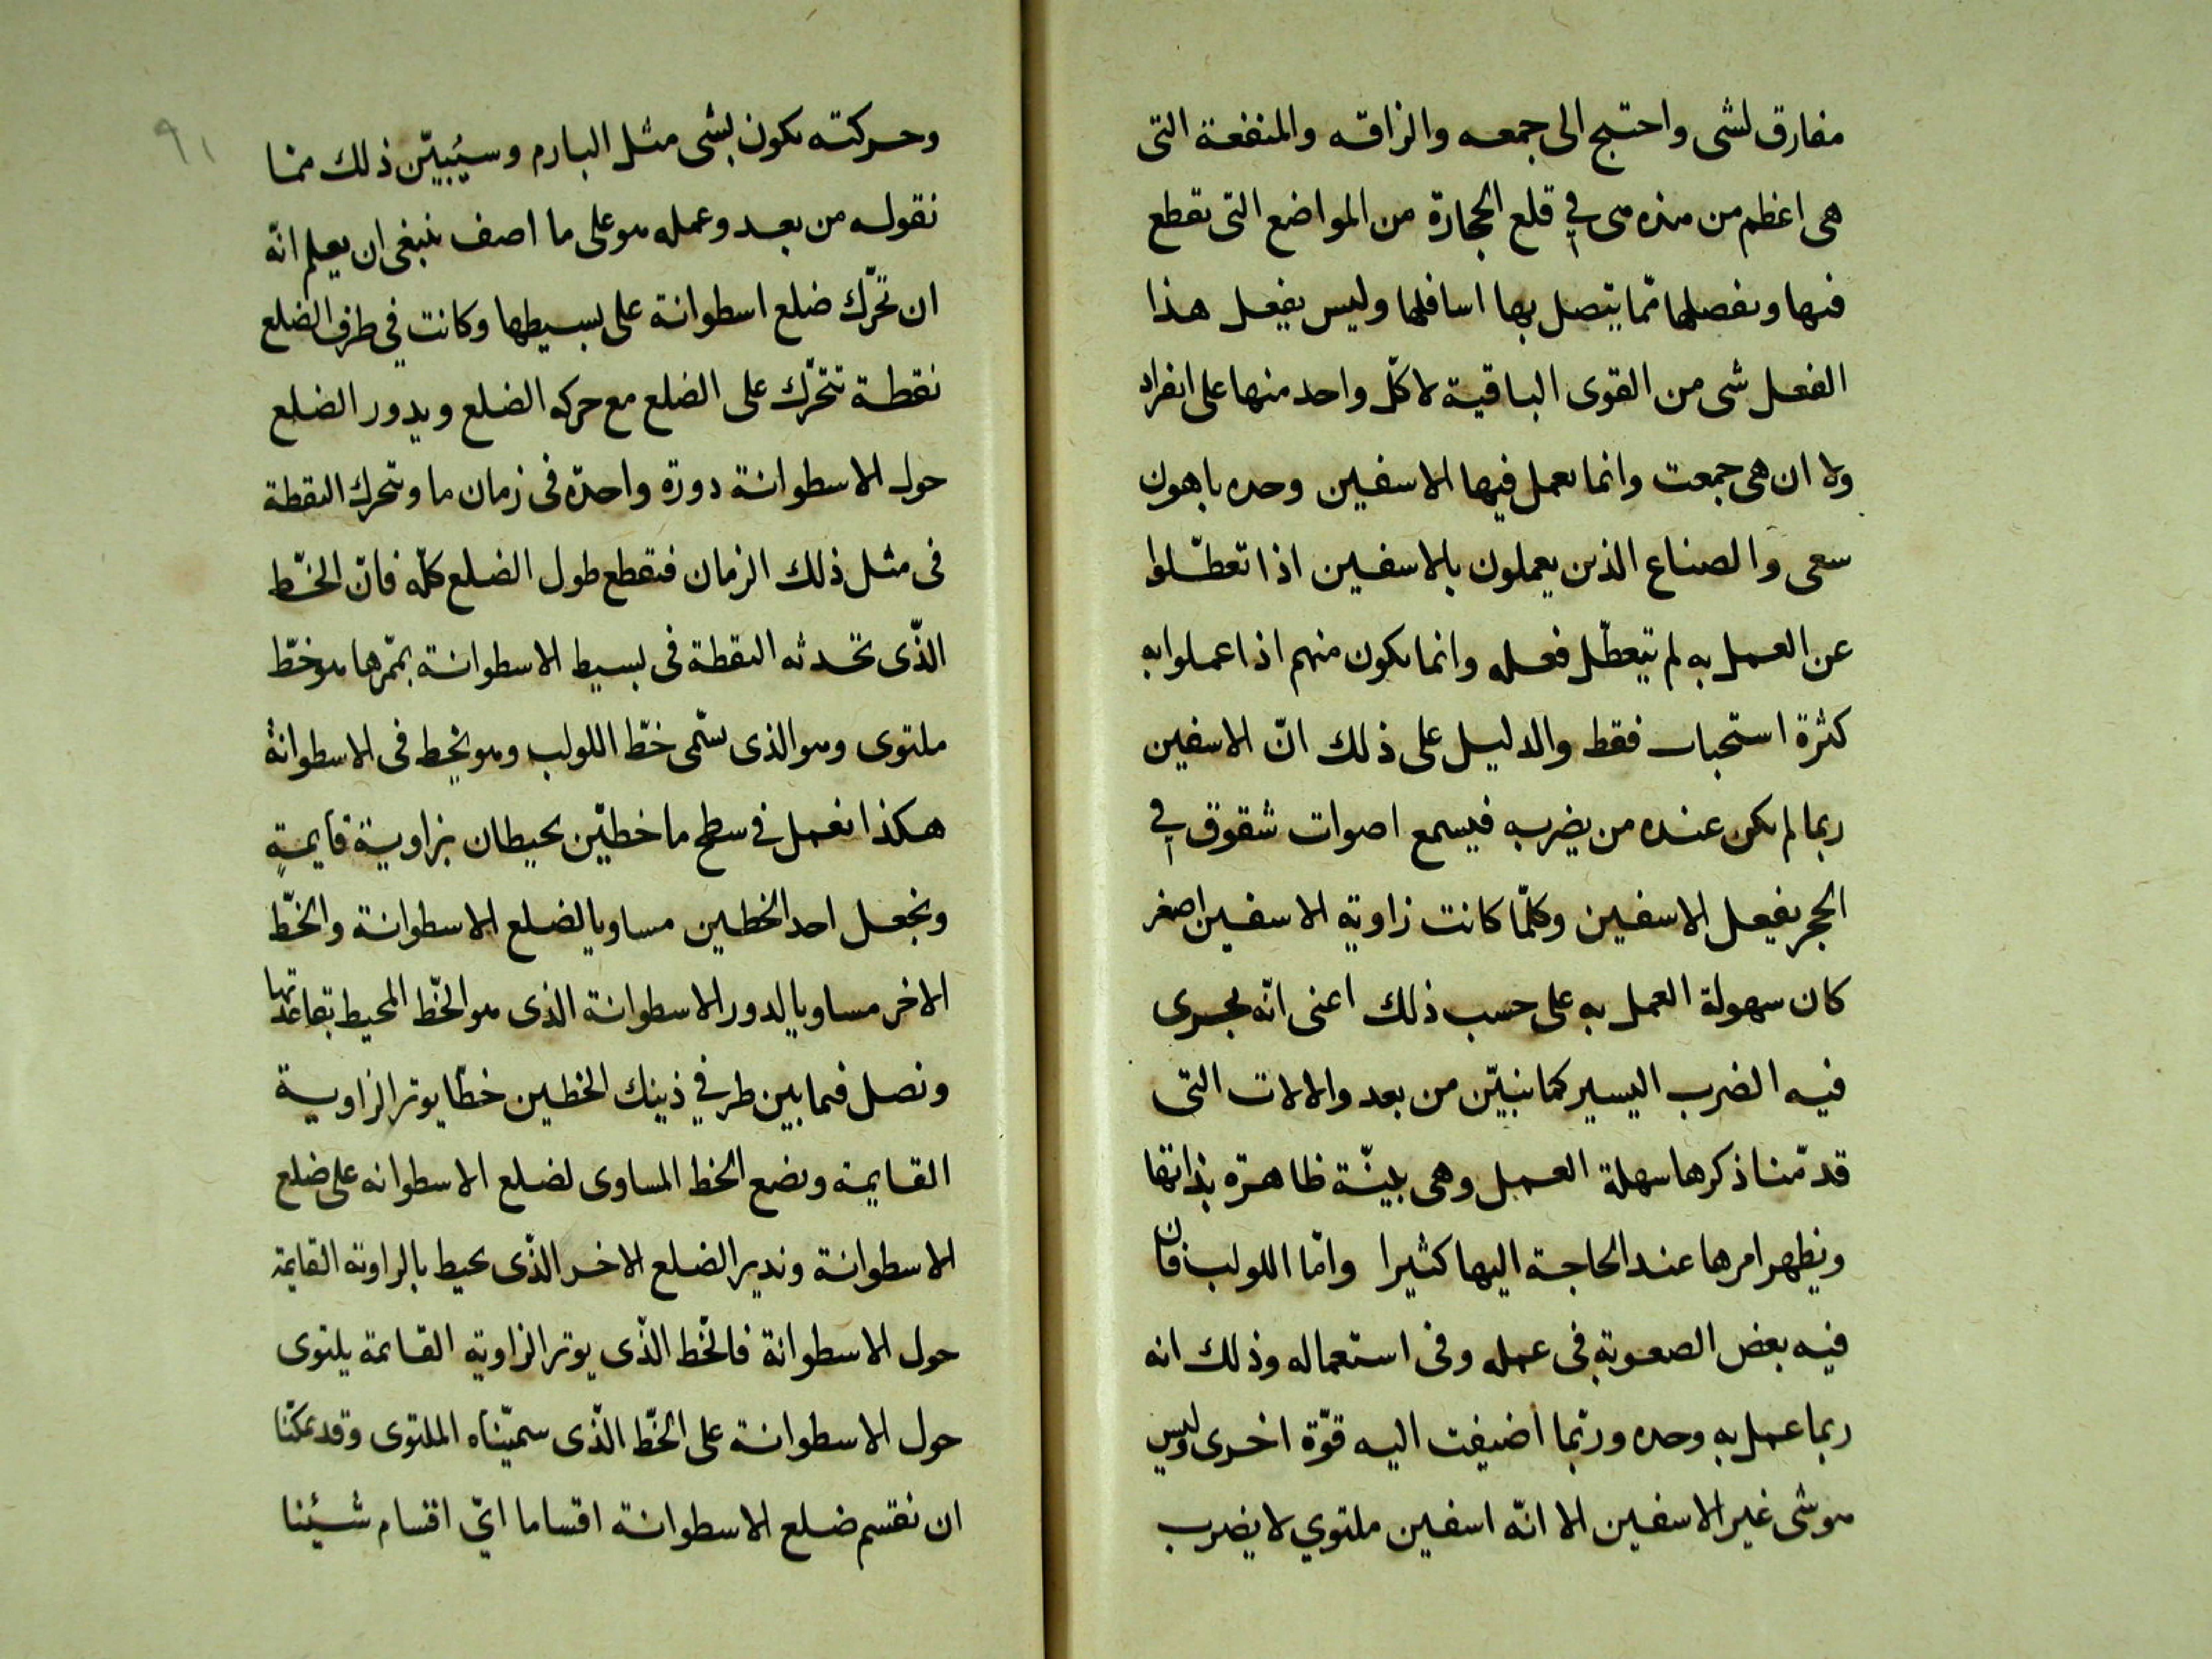 مفارق لشى واحتيج الى جمعه والزاقه والمنفعة التى
هى اعظم من هذه هى في قلع الحجارة من المواضع التى تقطع
فيها ونفصلها ممّا يتصل بها اسافلها وليس يفعل هذا
الفعل شى من القوى الباقية لا كلّ واحد منها على انفراد
ولا ان هى جمعت وانما يعمل فيها الاسفين وحده باهون
سعى والصناع الذين يعملون بالاسفين اذا تعطّلوا
عن العمل به لم يتعطّل فعله وانما يكون منهم اذا عملوا به
كثرة فقط والدليل على ذلك انّ الاسفين
ربما لم يكن عنده من يضربه فيسمع اصوات شقوق في
الحجر بفعل الاسفين وكلّما كانت زاوية الاسفين اصغر
كان سهولة العمل به على حسب ذلك اعنى انّه يجرى
فيه الضرب اليسير كما نبيّن من بعد والالات التى
قدّمنا ذكرها سهلة العمل وهى بيّنة ظاهرة بذاتها
ويظهر امرها عند الحاجة اليها كثيرا وامّا اللولب فان
فيه بعض الصعوبة فى عمله وفى استعماله وذلك انه
ربما عمل به وحده وربّما اضيفت اليه قوّة اخرى وليس
هو شى غير الاسفين الا انّه اسفين ملتوي لا يضرب
٩١
وحركته يكون بشى مثل البارم وسيُبيّن ذلك منما
نقوله من بعد وعمله هو على ما اصف ينبغى ان يعلم انّه
ان تحرّك ضلع اسطوانة على بسيطها وكانت في طرف الضلع
نقطة تتحرّك على الضلع مع حركه الضلع ويدور الضلع
حول الاسطوانة دورة واحدة فى زمان ما وتتحرك النقطة
فى مثل ذلك الزمان فتقطع طول الضلع كلّه فانّ الخّط
الذّى تحدثه النقطة فى بسيط الاسطوانة بممّرها هو خطّ
ملتوى وهو الذى يسّمى خطّ اللولب وهو يخيط فى الاسطوانة
هكذا نعمل في سطح ما خطيّن يحيطان بزاوية قايمةٍ
ونجعل احد الخطين مساويا لضلع الاسطوانة والخّط
الاخر مساويا لدور الاسطوانة الذى هو الخّط المحيط بقاعدتها
ونصل فيما بين طرفي ذينك الخطين خطّا يوتر الزاوية
القايمة ونضع الخط المساوى لضلع الاسطوانه على ضلع
الاسطوانة وندير الضلع الاخر الذّى يحيط بالزاوية القايمة
حول الاسطوانة فالخّط الذّى يوتر الزاوية القايمة يلتوى
حول الاسطوانة على الخّط الذّى سميّناه الملتوى وقد يمكّننا
ان نقسم ضلع الاسطوانة اقساما ايّ اقسام شئنا